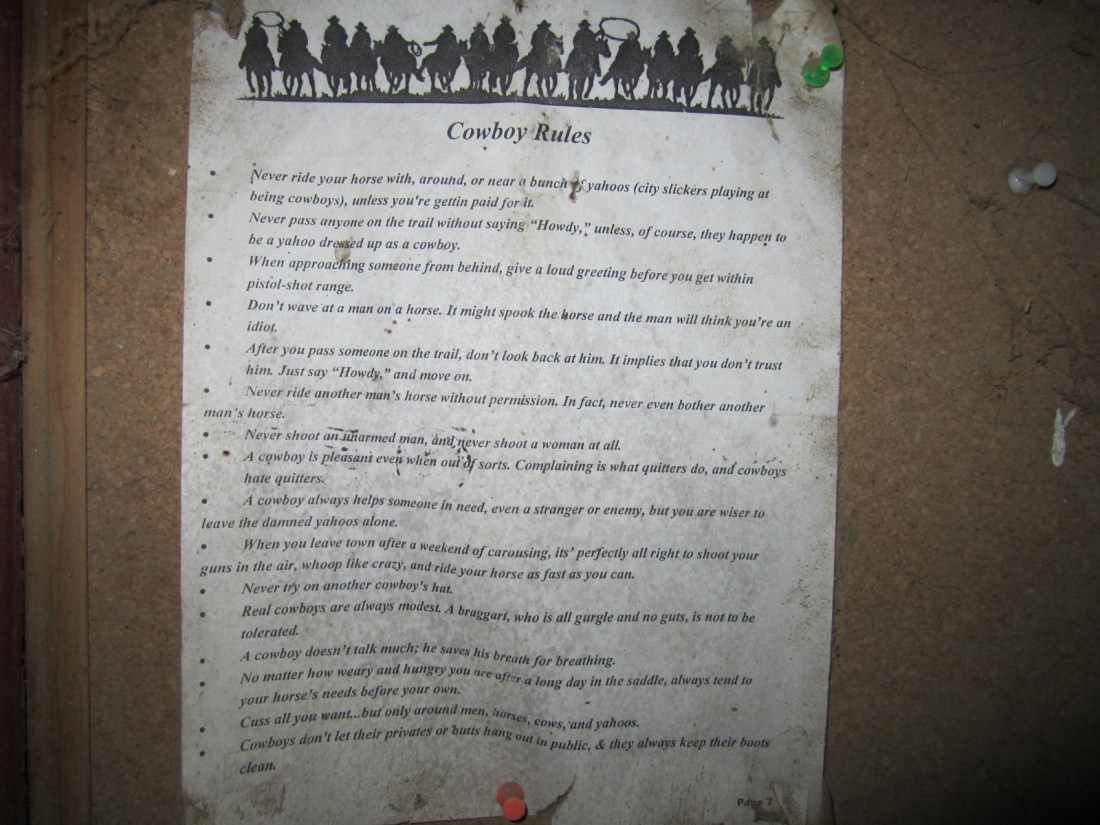 Cowboy Rules
• Never ride your horse with, around, or near a bunch of yahoos (city slickers playing at
being cowboys), unless you're gettin paid for it.
• Never pass anyone on the trail without saying “Howdy,” unless, of course, they happen to
be a yahoo dressed up as a cowboy.
• When approaching someone from behind, give a loud greeting before you get within
pistol-shot range.
• Don’t wave at a man on a horse. It might spook the horse and the man will think you’re an
idiot.
• After you pass someone on the trail, don’t look back at him. It implies that you don’t trust
him. Just say “Howdy,” and move on.
• Never ride another man’s horse without permission. In fact, never even bother another
man’s horse.
• Never shoot an unarmed man, and never shoot a woman at all.
• A cowboy is pleasant even when out of sorts. Complaining is what quitters do, and cowboys
hate quitters.
• A cowboy always helps someone in need, even a stranger or enemy, but you are wiser to
leave the damned yahoos alone.
• When you leave town after a weekend of carousing, its’ perfectly all right to shoot your
guns in the air, whoop like crazy, and ride your horse as fast as you can.
• Never try on another cowboy’s hat.
• Real cowboys are always modest. A braggart, who is all gurgle and no guts, is not to be
tolerated.
• A cowboy doesn’t talk much; he saves his breath for breathing.
• No matter how weary and hungry you are after a long day in the saddle, always tend to
your horse’s needs before your own.
• Cuss all you want...but only around men, horses, cows, and yahoos.
• Cowboys don't let their privates or butts hang out in public, & they always keep their boots
clean.
Page 7